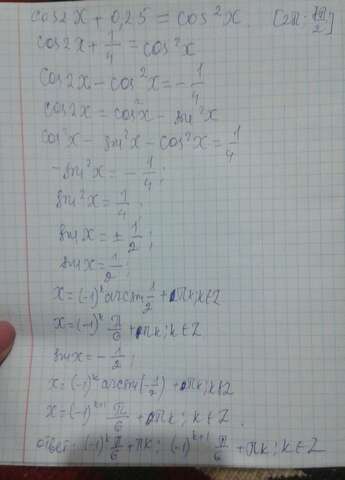 cos2x + 0,25 = cos²x. [2π; 7π/2]
cos2x + 1/4 = cos²x
cos2x - cos²x = -1/4
cos2x = cos²x - sin²x
cos²x - sin²x - cos²x = 1/4
-sin²x = -1/4;
sin²x = 1/4;
sin x = ± 1/2;
sin x = 1/2;
x = (-1)ᵏ arcsin 1/2 + πk; k∈Z
x = (-1)ᵏ π/6 + πk; k∈Z
sin x = -1/2;
x = (-1)ᵏ arcsin(-1/2) + πk; k∈Z
x = (-1)ᵏ⁺¹ π/6 + πk; k∈Z.
ответ: (-1)ᵏ π/6 + πk; (-1)ᵏ⁺¹ π/6 + πk; k∈Z